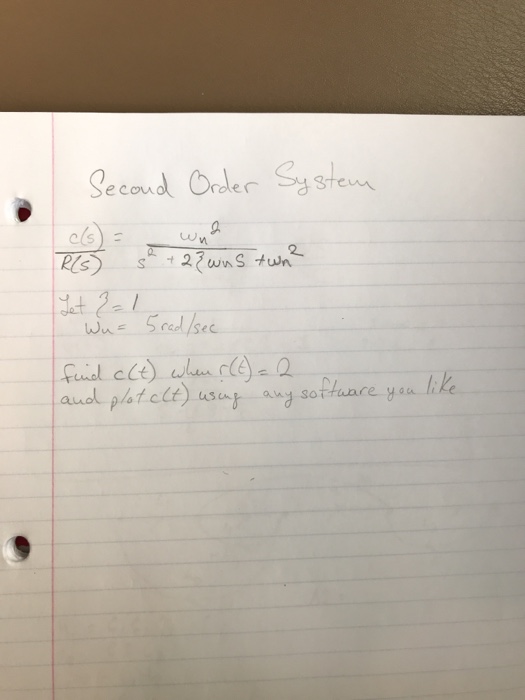 Second Order System
C(s) = ωn²
R(s) s² + 2ζωns + ωn²
Let ζ = 1
ωn = 5 rad/sec
find c(t) when r(t) = 2
and plot c(t) using any software you like